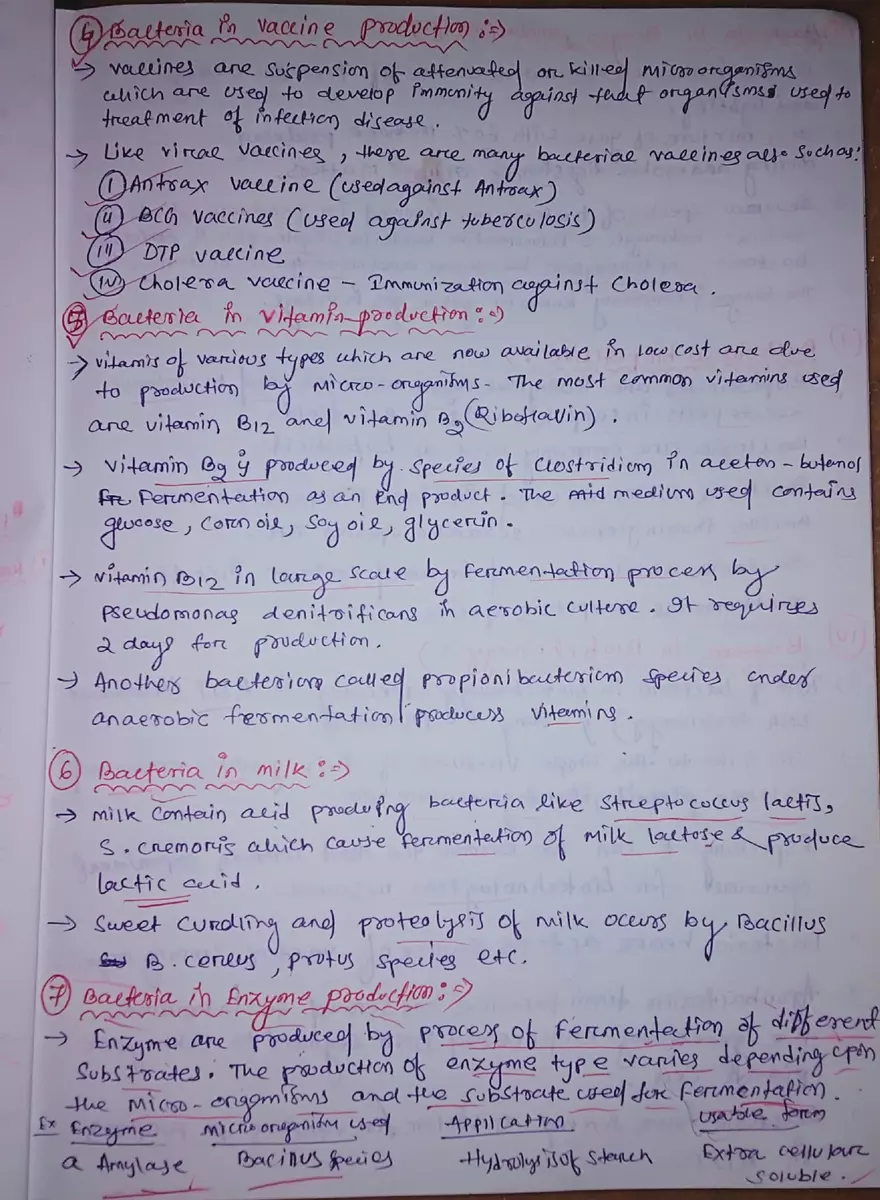 ④ Bacteria in vaccine production :⇒
→ vaccines are suspension of attenuated or killed microorganisms
which are used to develop immunity against that organisms used to
treatment of infection disease.
→ Like viral vaccines, there are many bacterial vaccines also such as:
(i) Antrax vaccine (used against Antrax)
(ii) BCG vaccines (used against tuberculosis)
(iii) DTP vaccine
(iv) Cholera vaccine - Immunization against Cholera.
⑤ Bacteria in vitamin production :⇒
→ vitamis of various types which are now available in low cost are due
to production by micro-organisms. The most common vitamins used
are vitamin B12 and vitamin B2 (Riboflavin).
→ Vitamin B2 is produced by species of Clostridium in aceton-butanol
Fermentation as an End product. The medium used contains
glucose, corn oil, soy oil, glycerin.
→ vitamin B12 in large scale by fermentation process by
pseudomonas denitrificans in aerobic culture. It requires
2 days for production.
→ Another bacterium called propionibacterium species under
anaerobic fermentation producess vitamins.
⑥ Bacteria in milk :⇒
→ milk contain acid produing bacteria like Streptococcus lactis,
S. cremoris which cause fermentation of milk lactose & produce
lactic acid.
→ Sweet curdling and proteolysis of milk occurs by Bacillus
B. cereus, protus species etc.
⑦ Bacteria in Enzyme production :⇒
→ Enzyme are produced by process of fermentation of different
substrates. The production of enzyme type varies depending upon
the micro-organisms and the substrate used for fermentation.
Ex Enzyme microorganism used Application usable form
a Amylase Bacillus species Hydrolysis of starch Extra cellular
soluble.